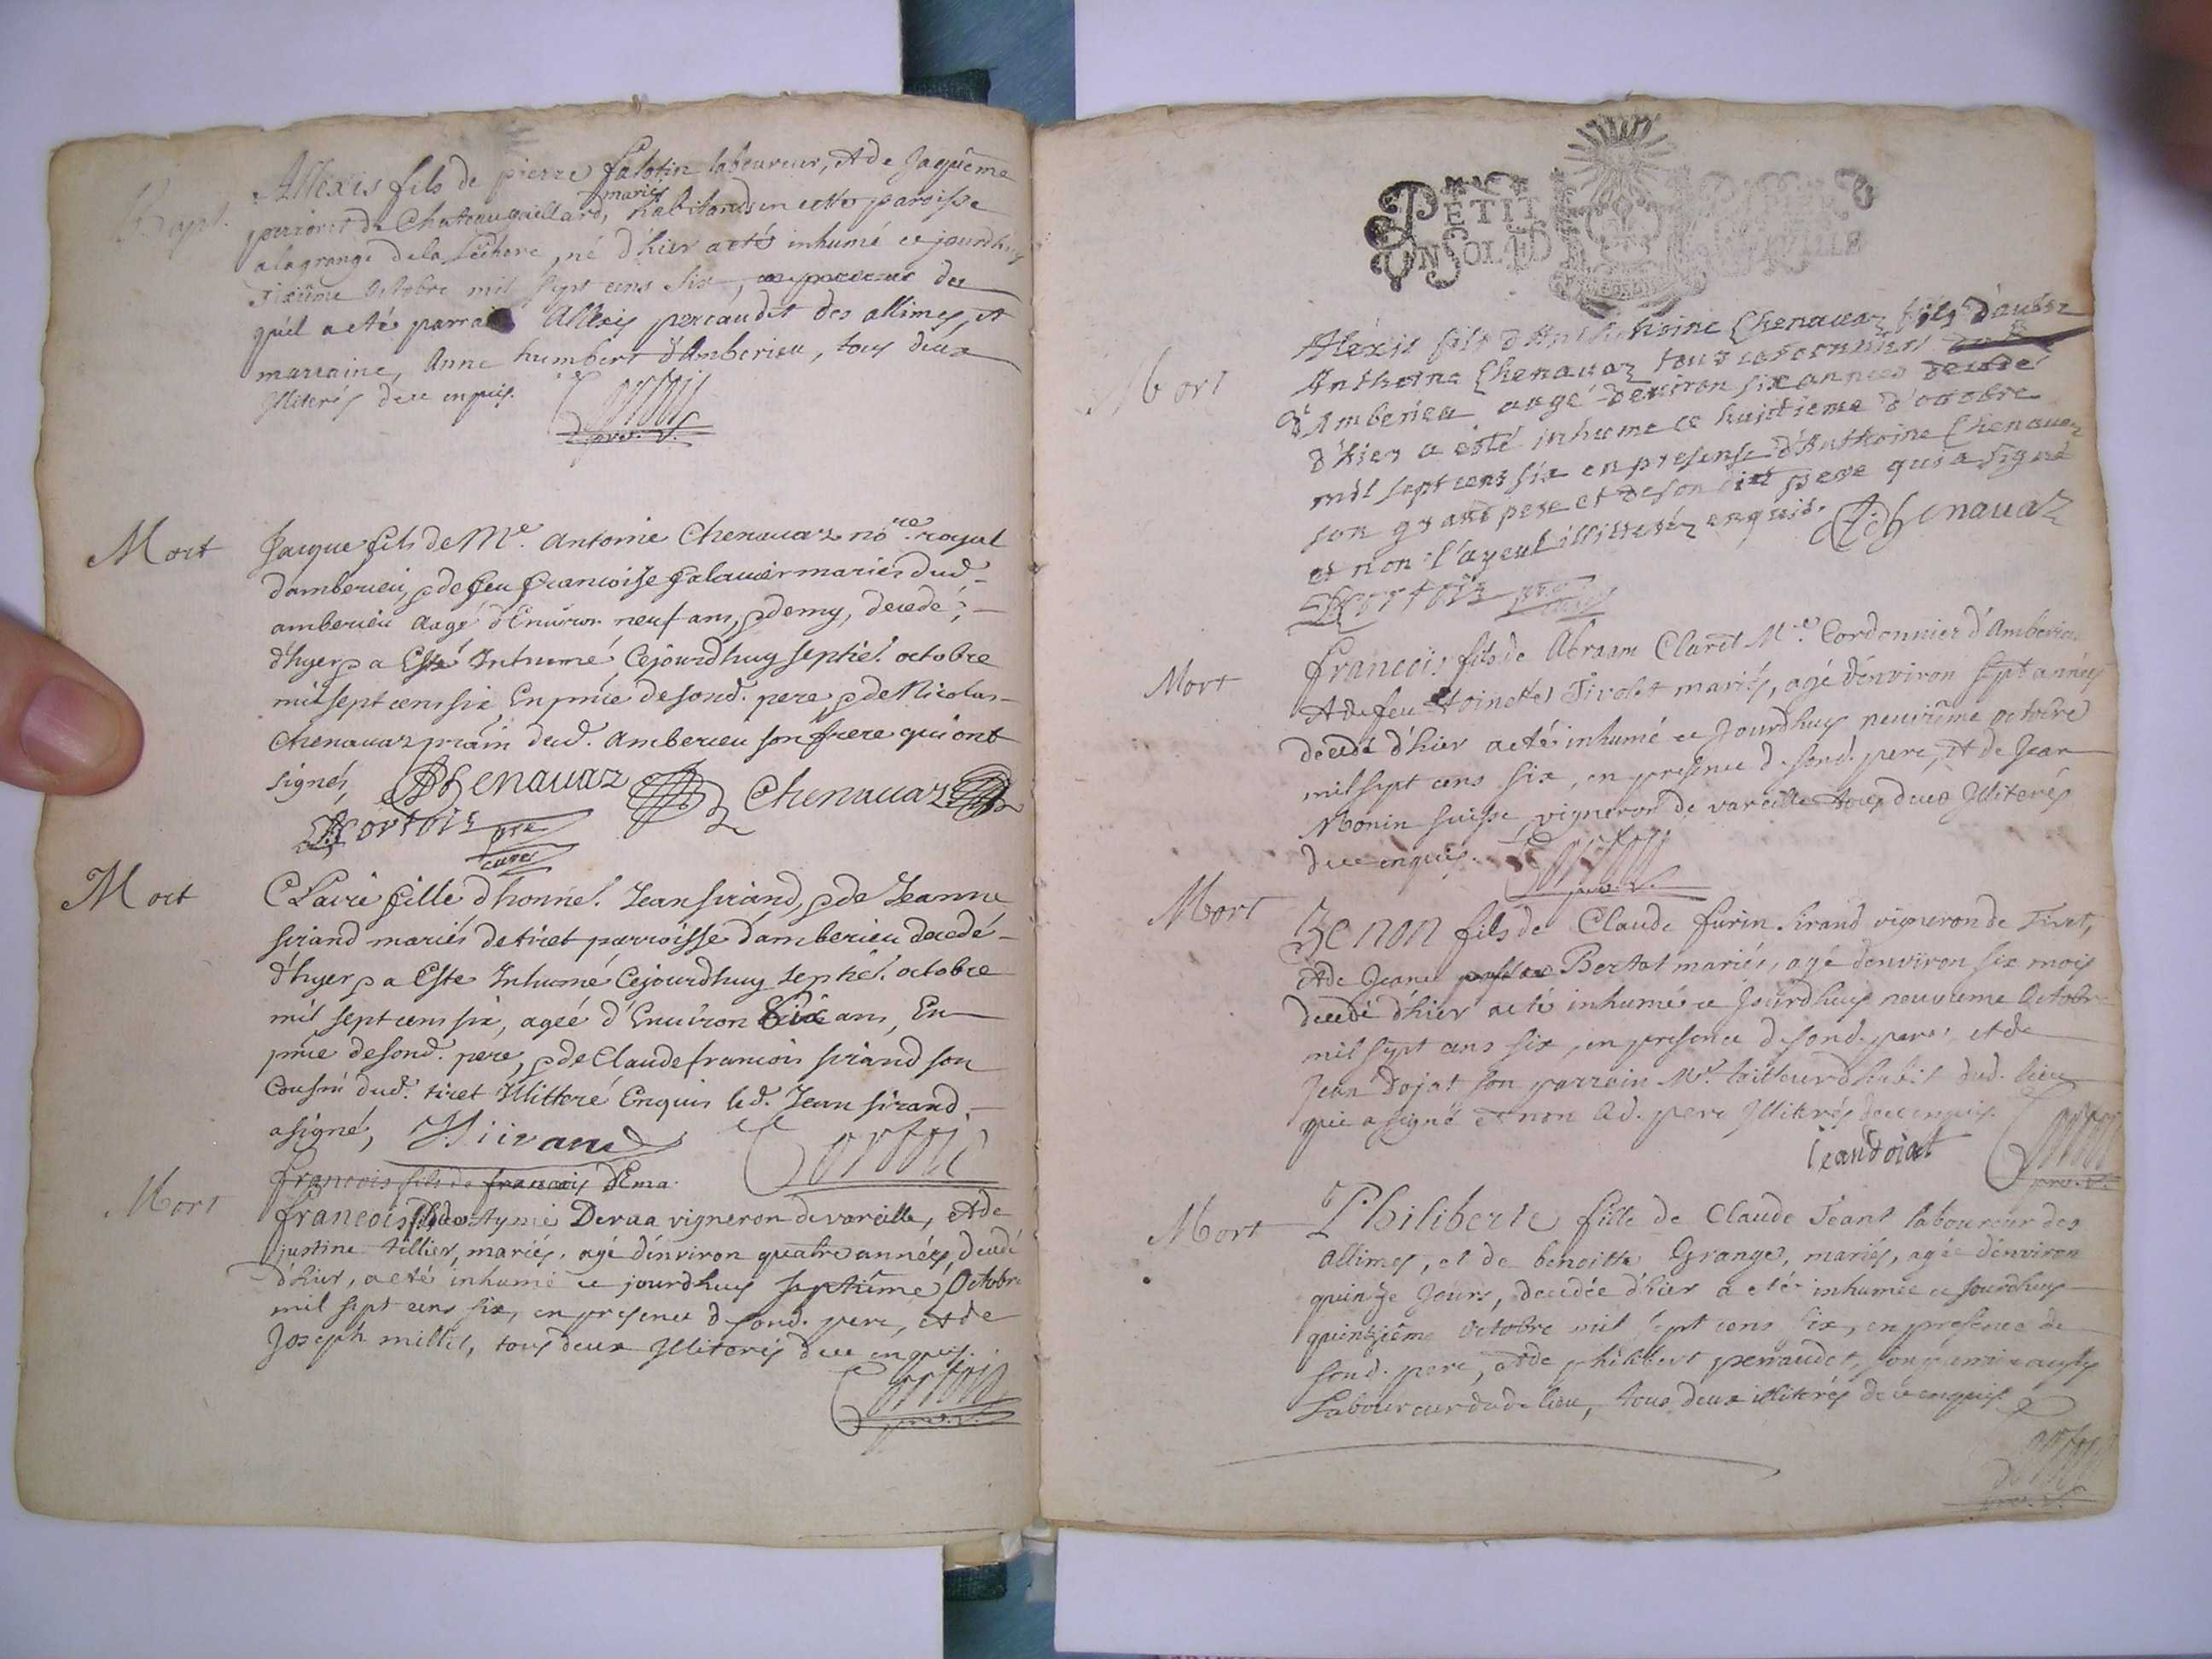 Bapt.
Allexis fils de pierre falotin laboureur, et de Jaquême
mariés
perroret de Chateaugaillard, habitands en cette paroisse
a lagrange dela , né d'hier a eté inhumé ce jourdhuy
sixiême Octobre mil sept cens six, de
quil a eté parrain Allexis percaudet des allimes, et
marraine, Anne humbert d'Amberieu, tous deux
Illiterés de ce enquis.
Cortois
Mort
Jacque fils de Me. Antoine Chenavaz nore. royal
damberieu, & de feu francoise falavier mariés dud.
amberieu aagé d'Environ neuf ans, & demy, decedé,
d'hyer & a Esté Inhumé Cejourdhuy septiē. octobre
mil sept cens six, En pñce de sond. pere, & de Nicolas
Chenavaz dud. amberieu son frere qui ont
signés, AChenavaz Chenavaz
Cortois pre
curé
Mort
Claire fille d'honnē. Jean sirand, & de Jeanne
sirand mariés de tiret parroisse d'amberieu decedé
d'hyer & a Este Inhumé Cejourdhuy septiē. octobre
mil sept cens six, agée d'Environ Six ans, En
pñce de sond. pere, & de Claude francois sirand son
Cousin dud. tiret Illitteré Enquis led. Jean sirand
a signé, J Sirand Cortois
francois fils de francois d'Ema
Mort
francois fils de Aymé Deraa vigneron de vareille, et de
justine tillier, mariés, agé d'énviron quatre années, decedé
d'hier, a eté inhumé ce jourdhuy septiême Octobre
mil sept cens six, en presence de sond. pere, et de
Joseph millet, tous deux Illiterés de ce enquis.
Cortois
PETIT PAPIER
UN SOL LE D
Mort
Aléxis fils d'Anthoine Chenavaz fils d'autre
Anthoine Chenavaz tous cordonniers
d'Amberieu aagé d'environ six années decedé
d'hier a esté inhumé ce huictieme d'octobre
mil sept cens six en presense d'Anthoine Chenavaz
son grand pere et de son dit pere qui a signé
et non l'ayeul illitteréz enquis. AChenavaz
Cortois pre
Mort
francois fils de Abraam Claret Me. Cordonnier d'Amberieu
et de feu toinette Tivolet mariés, agé d'énviron sept années
decedé d'hier a eté inhumé ce Jourdhuy neuviême octobre
mil sept cens six, en presence de sond. pere, et de Jean
Monin suisse, vigneron de vareille tous deux Illiterés
de ce enquis. Cortois
Mort
Zenon fils de Claude furin sirand vigneron de Tiret,
et de Jeane Bertot mariés, agé d'environ six mois
decedé d'hier a eté inhumé ce Jourdhuy neuvieme Octobre
mil sept cens six, en presence de sond. pere, et de
Jean Dojat son parrain Me. tailleur d'habit dud. lieu
qui a signé et non led. pere Illiterés de ce enquis.
Jean doiat Cortois
Mort
Philiberte fille de Claude Jeant laboureur des
allimes, et de benoitte Grange, mariés, agée d'énviron
quinze Jours, decedée d'hier a eté inhumée ce Jourdhuy
quinziême Octobre mil sept cens six, en presence de
sond. pere, et de philibert perraudet, son parrain aussy
Laboureur dud. lieu, tous deux illiterés de ce enquis
Cortois